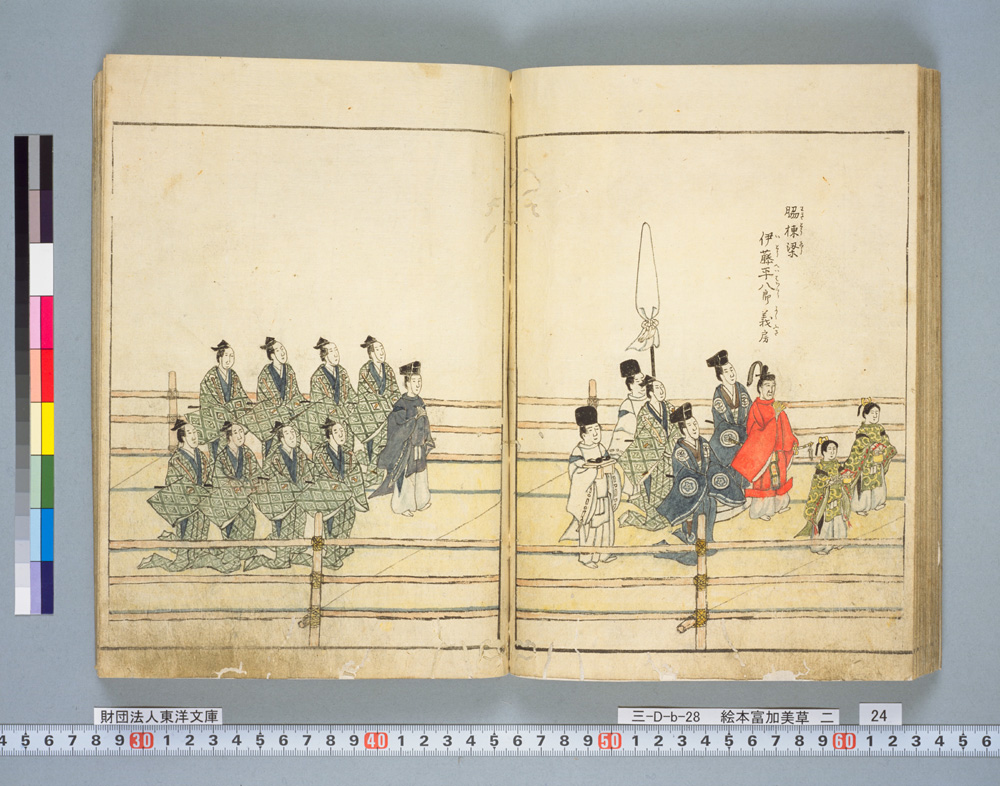 脇棟梁
伊藤平八郎義房
財団法人東洋文庫
三-D-b-28 絵本富加美草 二
24
4 5 6 7 8 9 30 1 2 3 4 5 6 7 8 9 40 1 2 3 4 5 6 7 8 9 50 1 2 3 4 5 6 7 8 9 60 1 2 3 4 5 6